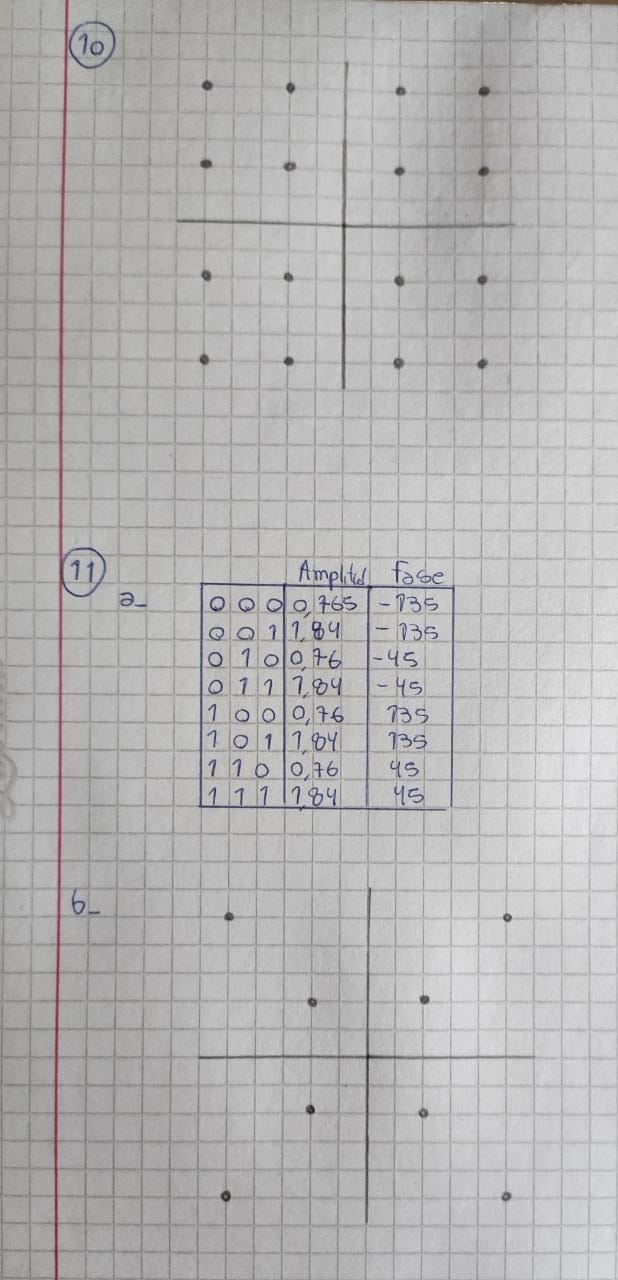 10
11
Amplitud Fase
a-
0 0 0 0,765 -135
0 0 1 1,84 -135
0 1 0 0,76 -45
0 1 1 1,84 -45
1 0 0 0,76 135
1 0 1 1,84 135
1 1 0 0,76 45
1 1 1 1,84 45
b-